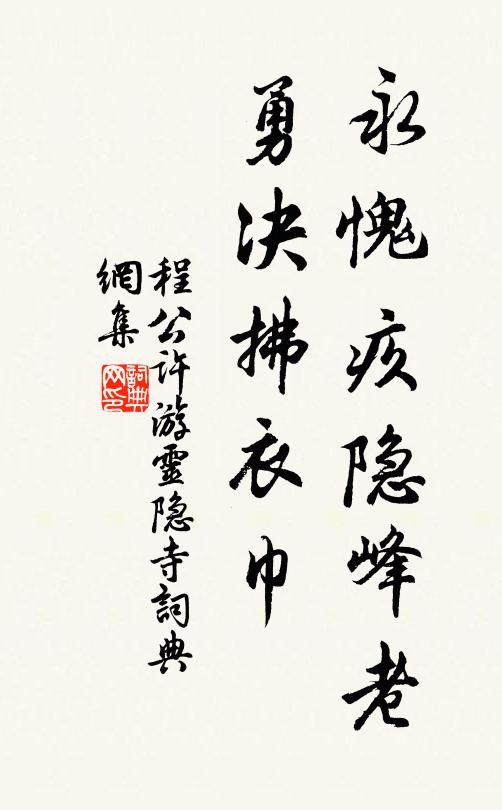 永愧疚隐峰老
勇决拂衣巾
程公许游靈隐寺詞典
網集
詞典
网印